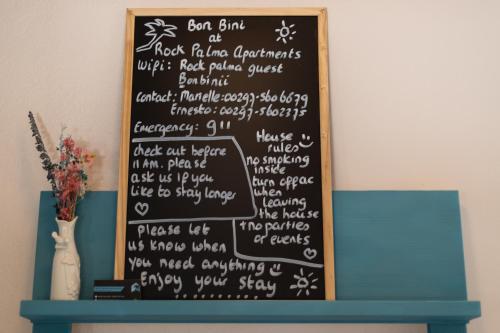 Bon Bini
at
Rock Palma Apartments
Wifi: Rock palma guest
Bonbinii
Contact: Marielle: 00297-5606679
Ernesto: 00297-5602375
Emergency: 911
check out before
11 AM. please
ask us if you
like to stay longer
House
rules
no smoking
inside
turn off ac
when
leaving
the house
no parties
or events
please let
us know when
you need anything
Enjoy your stay